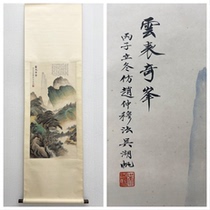 雲表奇峯
丙子立冬仿趙仲穆法吳湖帆